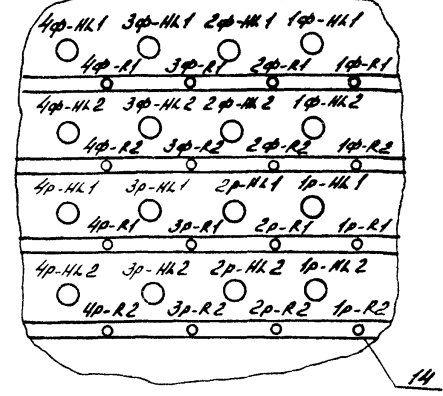 4ф-HL1 3ф-HL1 2ф-HL1 1ф-HL1
4ф-R1 3ф-R1 2ф-R1 1ф-R1
4ф-HL2 3ф-HL2 2ф-HL2 1ф-HL2
4ф-R2 3ф-R2 2ф-R2 1ф-R2
4р-HL1 3р-HL1 2р-HL1 1р-HL1
4р-R1 3р-R1 2р-R1 1р-R1
4р-HL2 3р-HL2 2р-HL2 1р-HL2
4р-R2 3р-R2 2р-R2 1р-R2
14